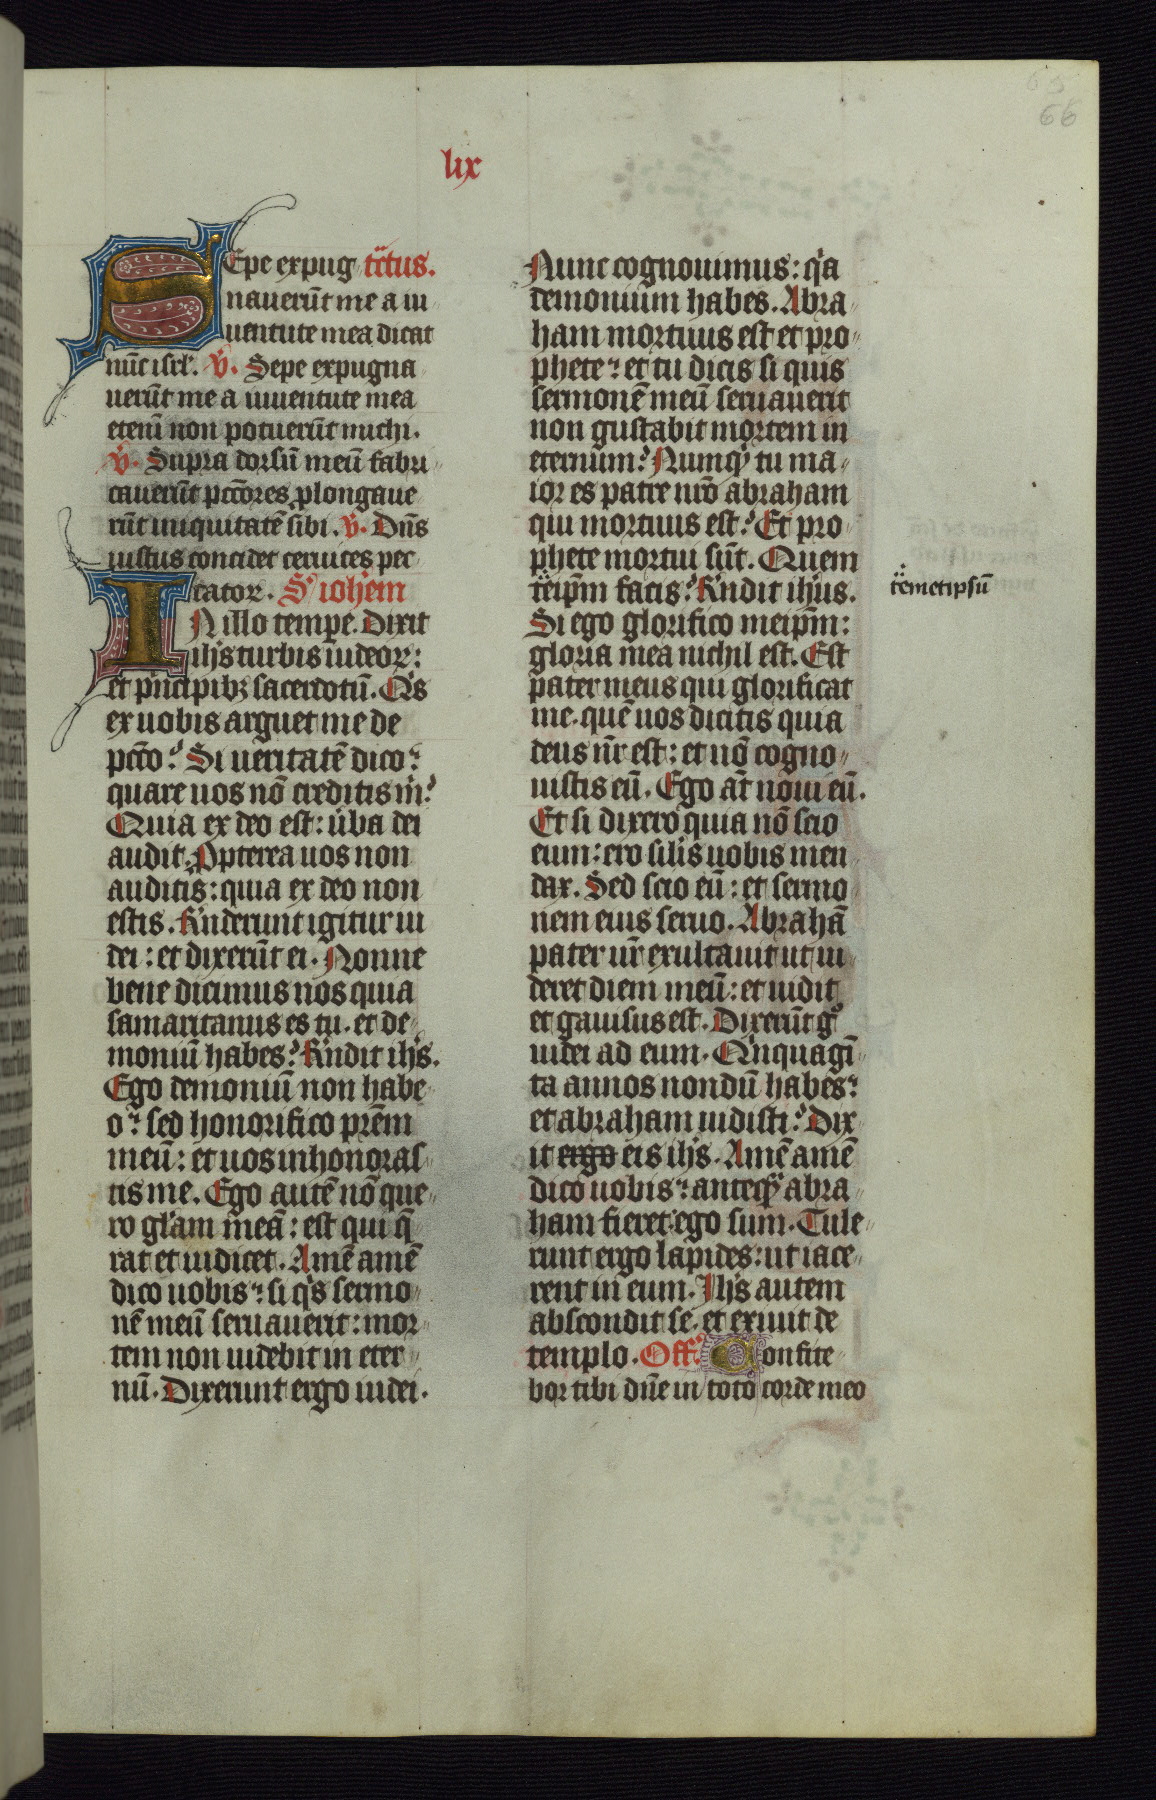 65
66
lix
SEpe expug tc̄tus.
nauerūt me a iu
uentute mea dicat
nūc isrl'. V̄. Sepe expugna
uerūt me a iuuentute mea
etenī non potuerūt michi.
V̄. Supra dorsū meū fabri
cauerūt pcc̄ores plongaue
rūt iniquitatē sibi. V̄. Dn̄s
iustus concidet ceruices pec
cator. S' ioh̄em
IN illo tempe. Dixit
ih̄s turbis iudeoꝝ:
et p̄ncipibꝫ sacerdotū. Q's
ex uobis arguet me de
pcc̄o? Si ueritatē dico?
quare uos nō creditis m̄?
Quia ex deo est: ūba dei
audit. Ppterea uos non
auditis: quia ex deo non
estis. R'nderunt igitur iu
dei: et dixerūt ei. Nonne
bene dicimus nos quia
samaritanus es tu. et de
moniū habes? R'ndit ih̄s.
Ego demoniū non habe
o? sed honorifico prēm
meū: et uos inhonoras
tis me. Ego autē nō que
ro gl'am meā: est qui q̄
rat et iudicet. Amē amē
dico uobis? si q's sermo
nē meū seruauerit: mor
tem non uidebit in eter
nū. Dixerunt ergo iudei.
Nunc cognouimus: q'a
demonium habes. Abra
ham mortuus est et pro
phete? et tu dicis si quis
sermonē meū seruauerit
non gustabit mortem in
eternum? Numqͥ tu ma
ior es patre nr̄o abraham
qui mortuus est? Et pro
phete mortui sūt. Quem
teip̄m facis? R'ndit ih̄us.
temetipsū
Si ego glorifico meip̄m:
gloria mea nichil est. Est
pater meus qui glorificat
me. quē uos dicitis quia
deus nr̄ est: et nō cogno
uistis eū. Ego āt noui eū.
Et si dixero quia nō scio
eum: ero sil'is uobis men
dax. Sed scio eū: et sermo
nem eius seruo. Abrahā
pater ur̄ exultauit ut ui
deret diem meū: et uidit
et gauisus est. Dixerūt gͦ
iudei ad eum. Q'nquagī
ta annos nondū habes?
et abraham uidisti? Dix
it ergo eis ih̄s. Amē amē
dico uobis? anteqͣ abra
ham fieret ego sum. Tule
runt ergo lapides: ut iace
rent in eum. Ih̄s autem
abscondit se. et exiuit de
templo. Off. Confite
bor tibi dn̄e in toto corde meo